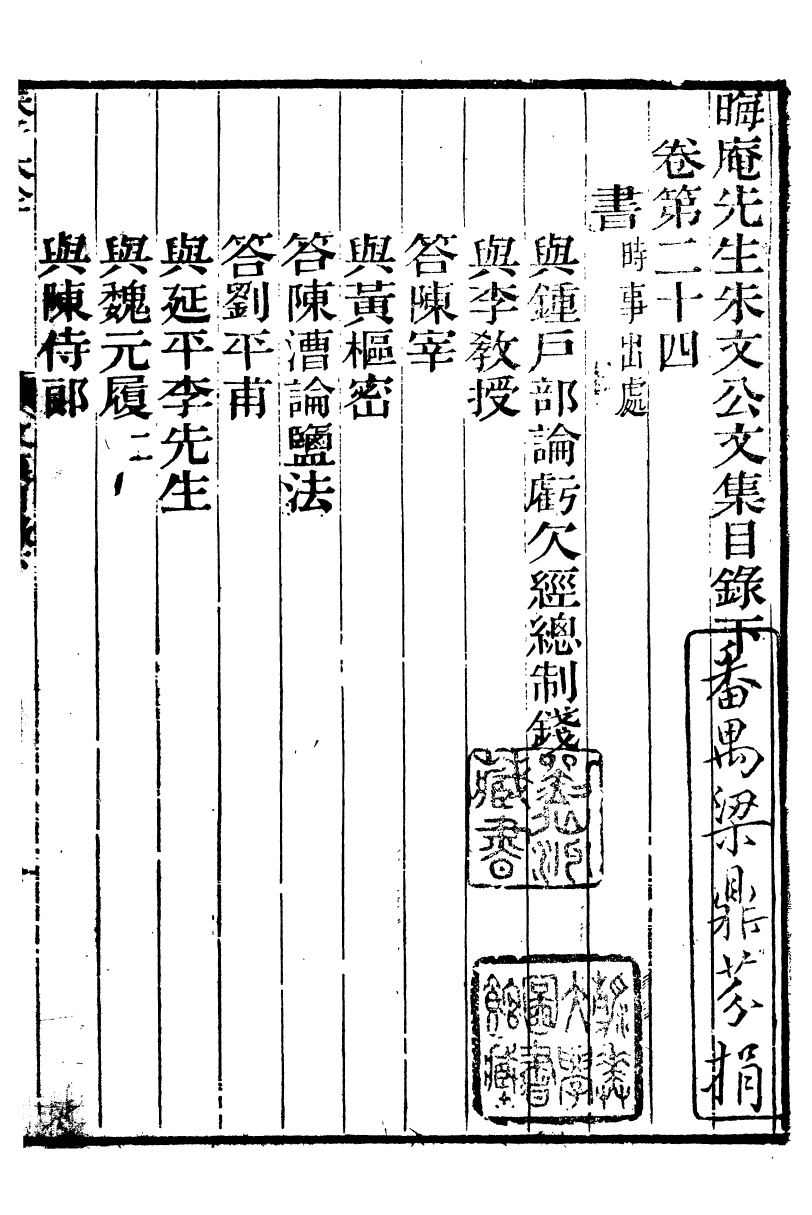 晦庵先生朱文公文集目錄下
卷第二十四
書時事出處
與鍾戶部論虧欠經總制錢
與李教授
答陳宰
與黃樞密
答陳漕論鹽法
答劉平甫
與延平李先生
與魏元履二
與陳侍郎
番禺梁鼎芬捐
藏書
大學
圖書
館藏